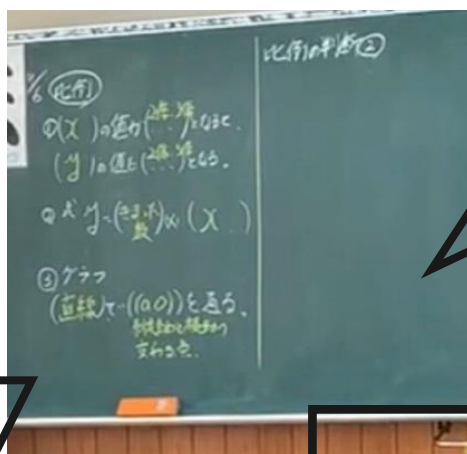 比例
①(x)の値が(2倍、3倍…)となると、
(y)の値も(2倍、3倍…)となる。
② 式 y=(きまった数)×(x)
③グラフ
(直線)で((0,0))を通る。
交わる点。
比例の判断②